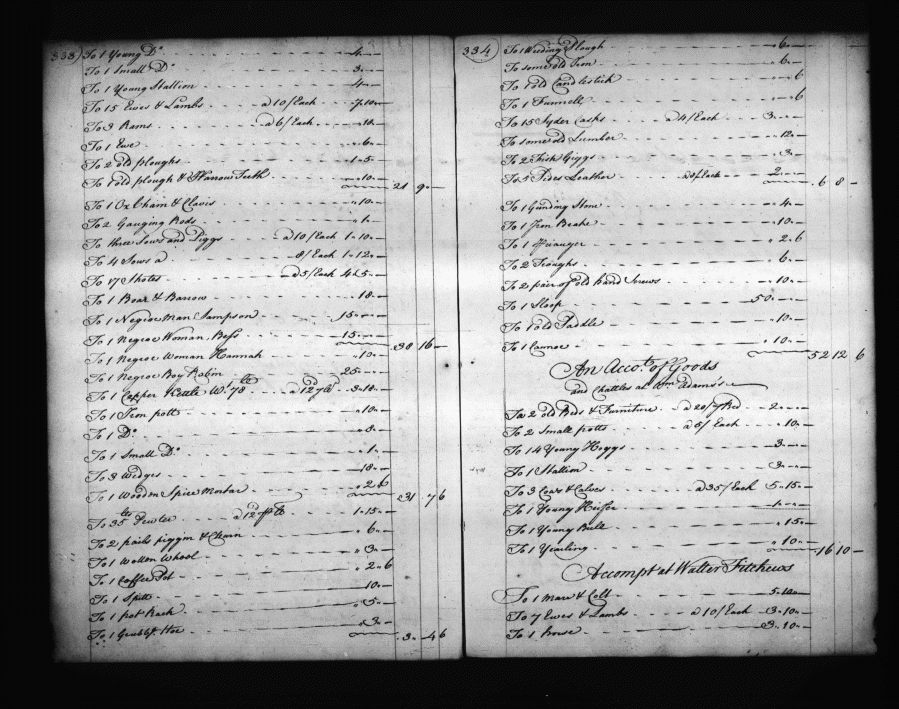 333) To 1 Young Do 4 " -
To 1 Small Do 3 " -
To 1 Young Stallion 4 " -
To 15 Ewes & Lambs a 10/Each 7 " 10 -
To 3 Rams a 6/Each
To 1 Ewe " 6 -
To 2 old ploughs 1 " 5 -
To 1 old plough & Harrow Teeth " 10 - 21 " 9 " -
To 1 Ox Chain & Clevis " 10 -
To 2 Gauging Rods " 1 -
To three Sows and Piggs a 10/Each 1 " 10 -
To 4 Sows a 8/Each 1 " 12 -
To 17 Shotes a 5/Each 4 " 5 -
To 1 Boar & Barrow 18 -
To 1 Negroe Man Sampson 15 " -
To 1 Negroe Woman Bess 15 " - 38 16 -
To 1 Negroe Woman Hannah " 10 -
To 1 Negroe Boy Robin 25 " -
To 1 Copper Kettle Wt. 78 lb a 12d lb 3 " 18 -
To 1 Iron pott " 10 -
To 1 Do " 3 -
To 1 Small Do " 1 -
To 3 Wedges
To 1 Wooden Spice Mortar " 2 6 31 " 7 6
To 35 lbs Pewter a 12d lb 1 " 15 -
To 2 pails piggin & Churn " 6 -
To 1 Wollen Wheel " 3 -
To 1 Coffee Pot " 2 " 6
To 1 Spitt 10 -
To 1 pot Rack " 5 -
To 1 Grubb Hoe " 3 - 3 " 4 6
334
To 1 Weeding Plough " 6 -
To some old Iron " 6 -
To 1 old Candlestick " 6
To 1 Funnell " 6
To 15 Syder Casks a 4/Each 3 " -
To some old Lumber " 12 -
To 2 Fish Giggs " 3 -
To 5 Sides Leather a 8/Each 2 " - 6 8 -
To 1 Grinding Stone " 4 -
To 1 Flax Brake " 10 -
To 1 " 2 " 6
To 2 Troughs " 6 -
To 2 pair of old Hand Screws " 10 -
To 1 Sloop 50 " -
To 1 old Saddle " 10 -
To 1 Cannoe " 10 - 52 12 6
An Accot. of Goods
and Chattles at Wm. Adams's
To 2 old Beds & Furniture a 20/ Bed 2 " -
To 2 Small potts a 5/Each " 10 -
To 14 Young Hoggs 3 " -
To 1 Stallion 3 " -
To 3 Cows & Calves a 35/Each 5 " 15 -
To 1 Young Heifer 1 " -
To 1 Young Bull " 15 -
To 1 Yearling " 10 - 16 10 -
Accompt at Walter Fitchews
To 1 Mare & Colt 5 " 10 -
To 7 Ewes & Lambs a 10/Each 3 " 10 -
To 1 horse 3 " 10 -